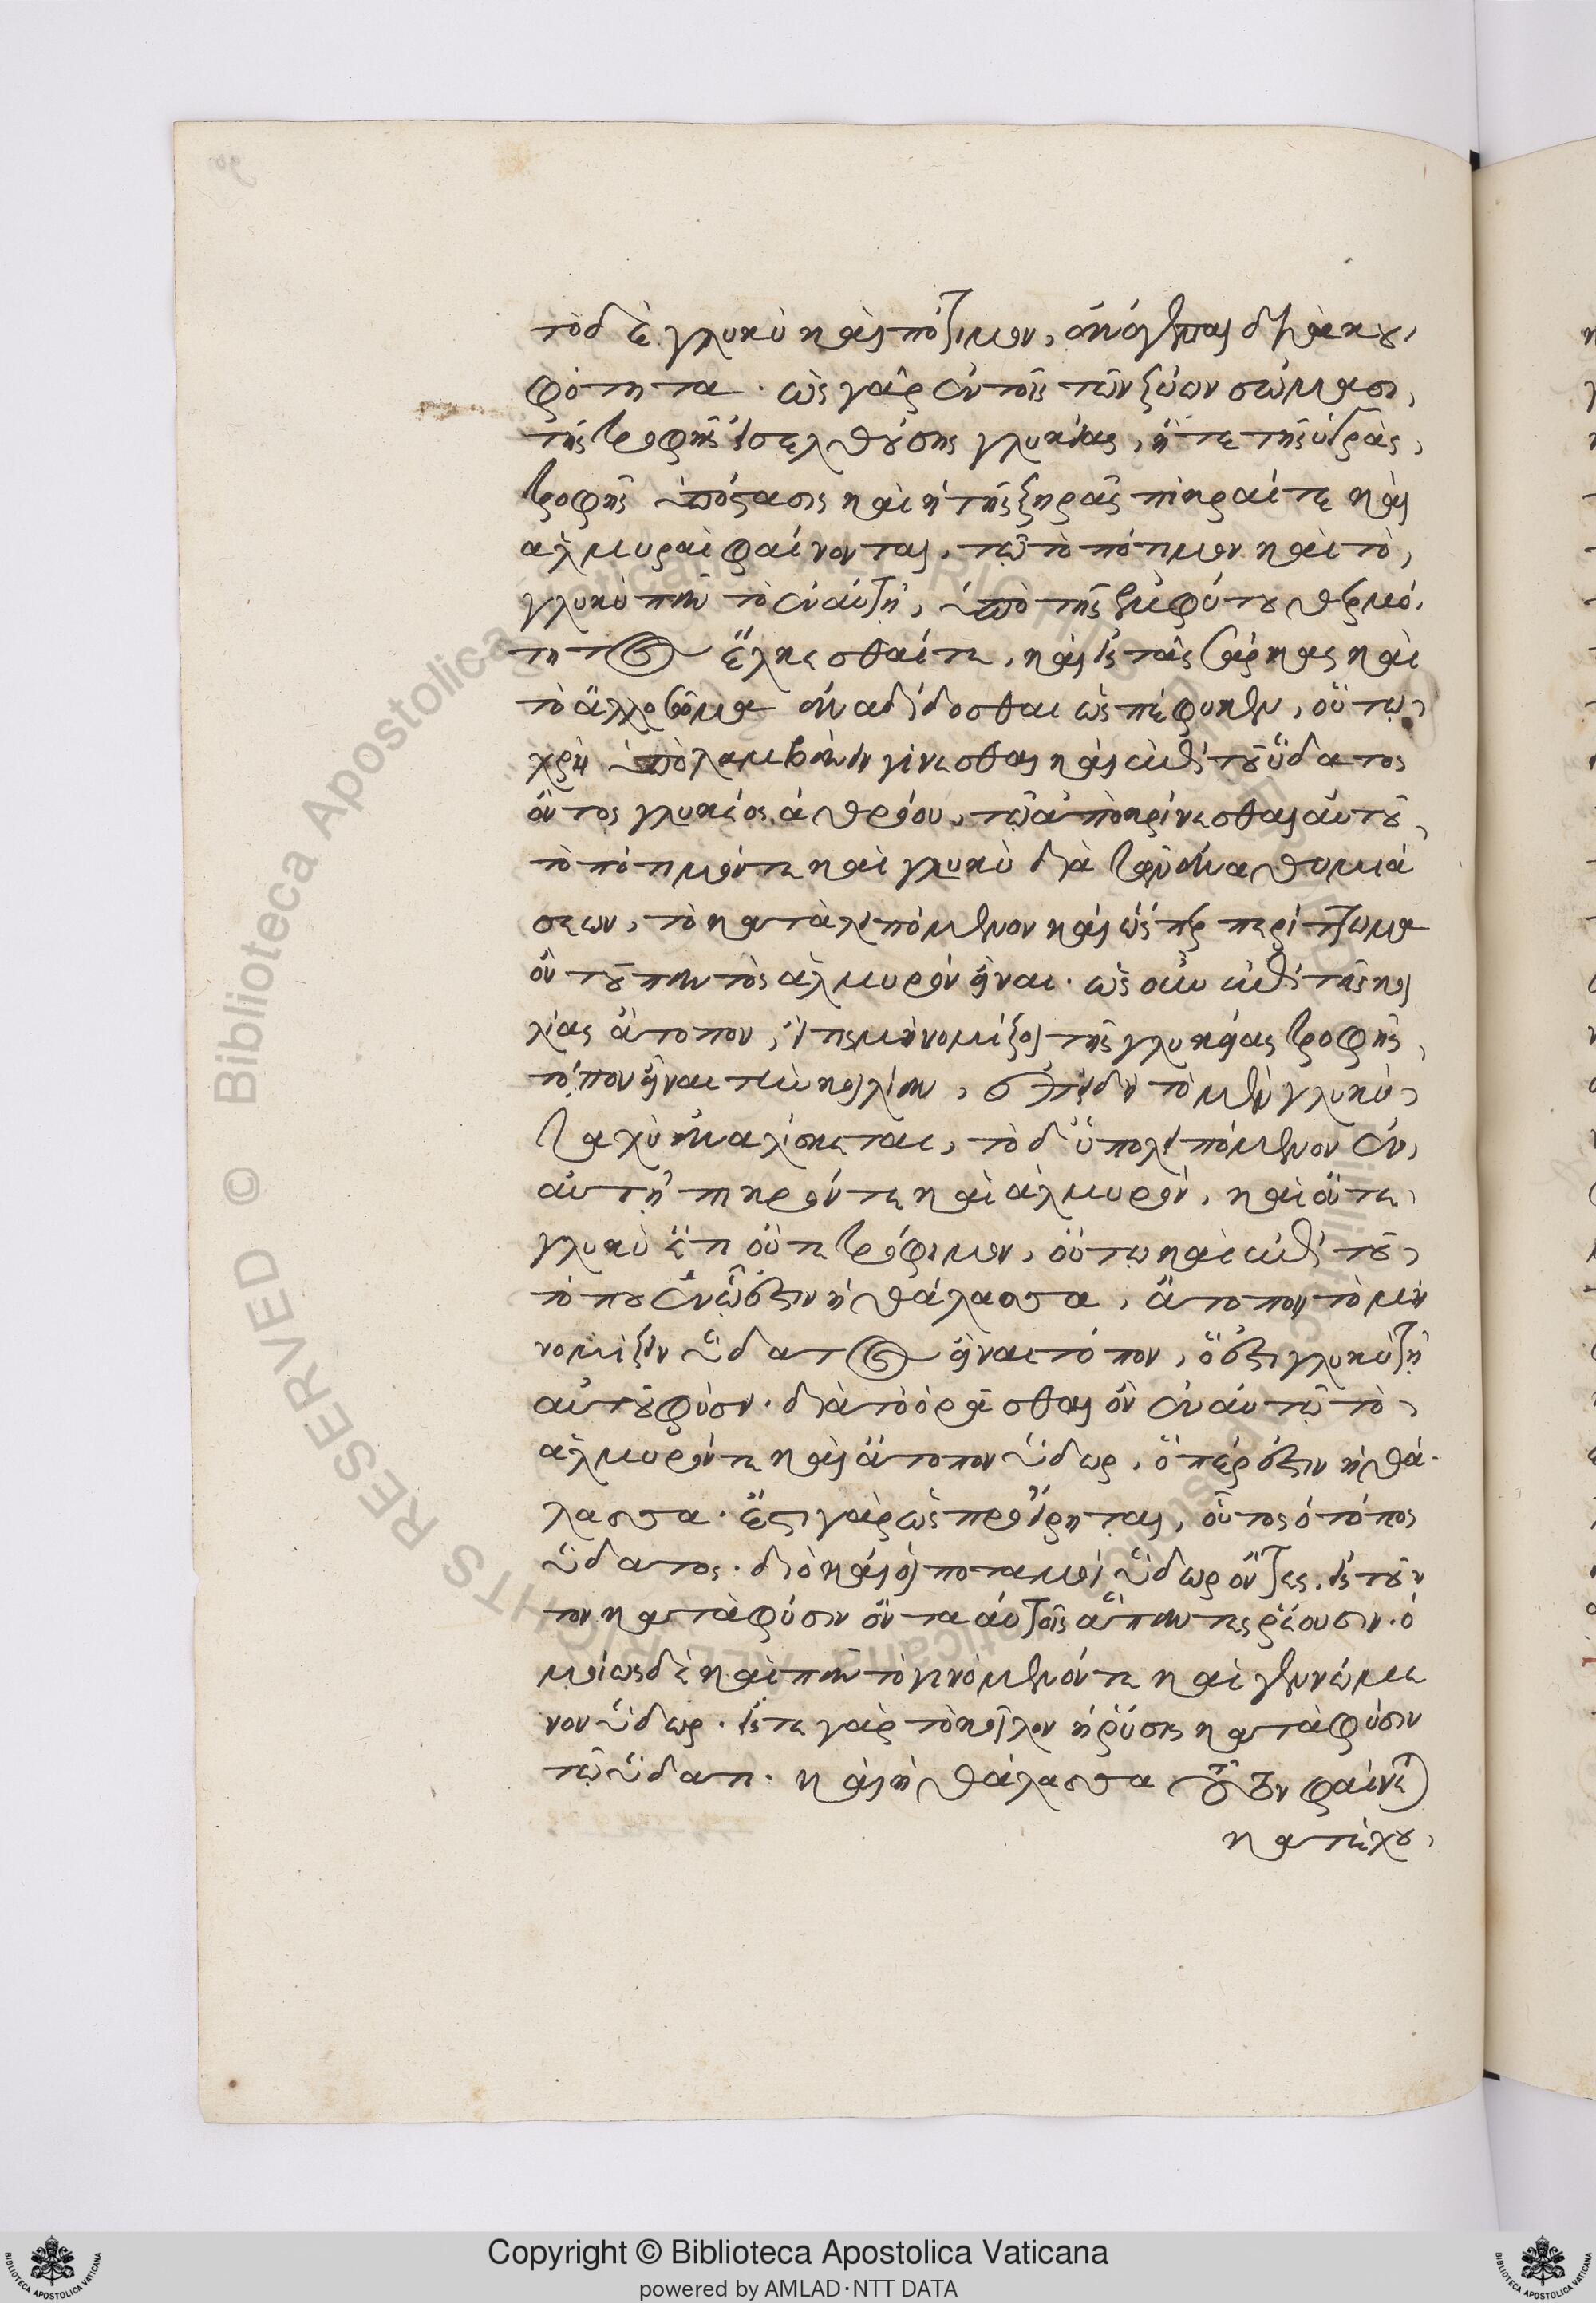 τὸ δὲ γλυκὺ καὶ πότιμον, ἀνάγεται διὰ κου
φότητα. ὡς γὰρ ἐν τοῖς τῶν ζώων σώμασι,
τῆς τροφῆς εἰσελθούσης γλυκείας, ἥ τε τῆς ὑγρᾶς
τροφῆς ὑπόστασις καὶ ἡ τῆς ξηρᾶς πικραί τε καὶ
ἁλμυραὶ φαίνονται, τῷ τὸ πότιμον καὶ τὸ
γλυκὺ πᾶν τὸ ἐν αὐτῇ, ὑπὸ τῆς ἐμφύτου θερμό
τητος ἕλκεσθαί τε, καὶ εἰς τὰς σάρκας καὶ
τὸ ἄλλο σῶμα ἀναδίδοσθαι ὡς πέφυκεν, οὕτω
χρὴ ὑπολαμβάνειν γίνεσθαι καὶ ἐπὶ τοῦ ὕδατος
ὄντος γλυκέος ἀθρόου, τῷ ἀποκρίνεσθαι αὐτοῦ
τὸ πότιμόν τε καὶ γλυκὺ διὰ τῶν ἀναθυμιά
σεων, τὸ καταλειπόμενον καὶ ὥσπερ περίττωμα
ὂν τοῦ παντὸς ἁλμυρὸν εἶναι. ὡς οὖν ἐπὶ τῆς κοι
λίας ἄτοπον, εἴ τις μὴ νομίζοι τῆς γλυκείας τροφῆς
τόπον εἶναι τὴν κοιλίαν, ἐπειδὴ τὸ μὲν γλυκὺ
ταχὺ ἀναλίσκεται, τὸ δ' ὑπολειπόμενον ἐν
αὐτῇ πικρόν τε καὶ ἁλμυρὸν, καὶ οὔτε
γλυκὺ ἔτι οὔτε τρόφιμον, οὕτω καὶ ἐπὶ τοῦ
τόπου ἐν ᾧ ἐστιν ἡ θάλασσα, ἄτοπον τὸ μὴ
νομίζειν ὕδατος εἶναι τόπον, ὅ ἐστι γλυκὺ τῇ
αὐτοῦ φύσει. διὰ τὸ ὁρᾶσθαι ὂν ἐν αὐτῷ τὸ
ἁλμυρόν τε καὶ ἄτοπον ὕδωρ, ὅπερ ἐστὶν ἡ θά
λασσα. ἔστι γὰρ ὡς προείρηται, οὗτος ὁ τόπος
ὕδατος. διὸ καὶ οἱ ποταμοὶ ὕδωρ ὄντες, εἰς τοῦ
τον κατὰ φύσιν ὄντα αὐτοῖς ἅπαντες ῥέουσιν. ὁ
μοίως δὲ καὶ πᾶν τὸ γινόμενόν τε καὶ γεννώμε
νον ὕδωρ. εἴς τε γὰρ τὸ κοῖλον ἡ ῥύσις κατὰ φύσιν
τῷ ὕδατι. καὶ ἡ θάλασσα τοῦτον φαίνεται
κατέχου